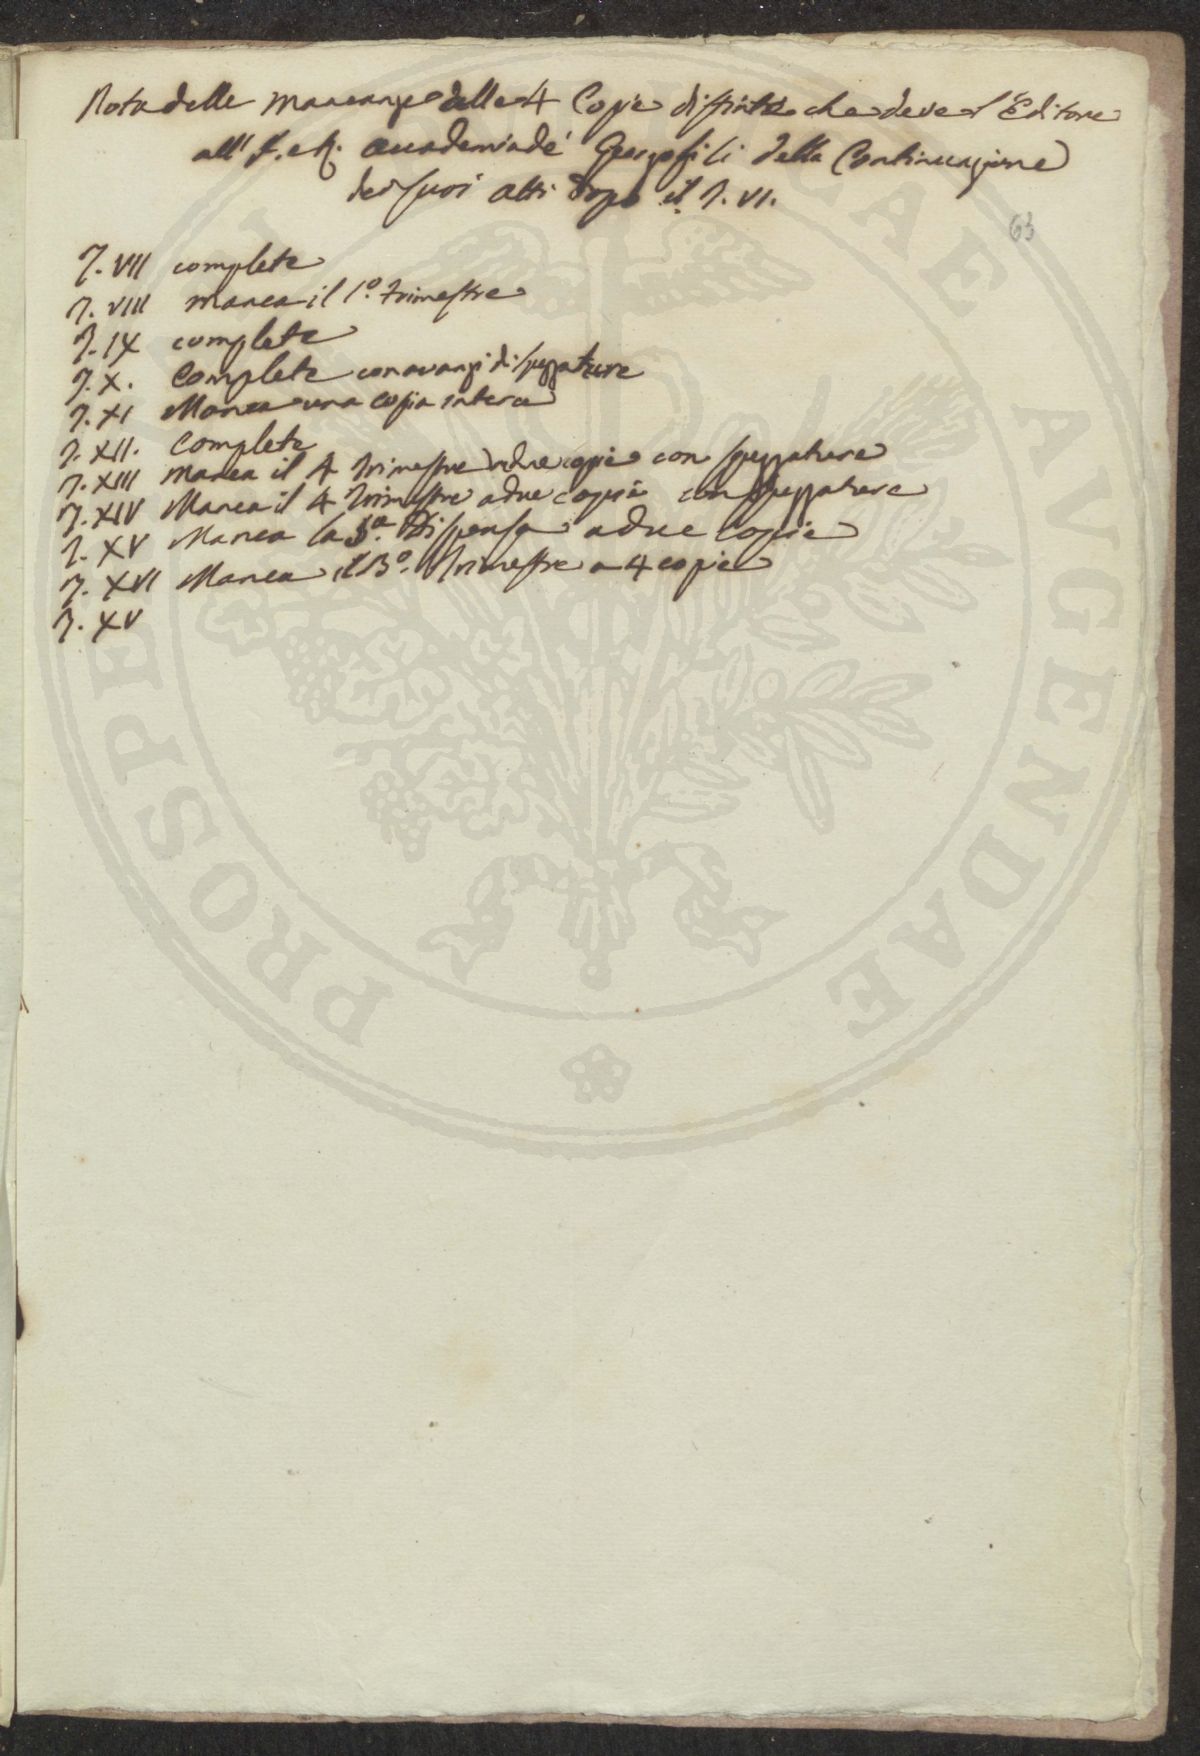 Nota delle mancanze delle 4 Copie distinte che deve l'Editore
all' I. e R. Accademia de' Georgofili della Continuazione
dei suoi atti dopo il T. VI.
63
T. VII complete
T. VIII manca il 1º. trimestre
T. IX complete
T. X. Complete con avanzi di spezzature
T. XI Manca una copia intera
T. XII. Complete
T. XIII Manca il 4 trimestre a due copie con spezzature
T. XIV Manca il 4 trimestre a due copie con spezzature
T. XV Manca la 3ª. Dispensa a due copie
T. XVI Manca il 3º. trimestre a 4 copie
T. XV
PROSPE AE AVGENDAE